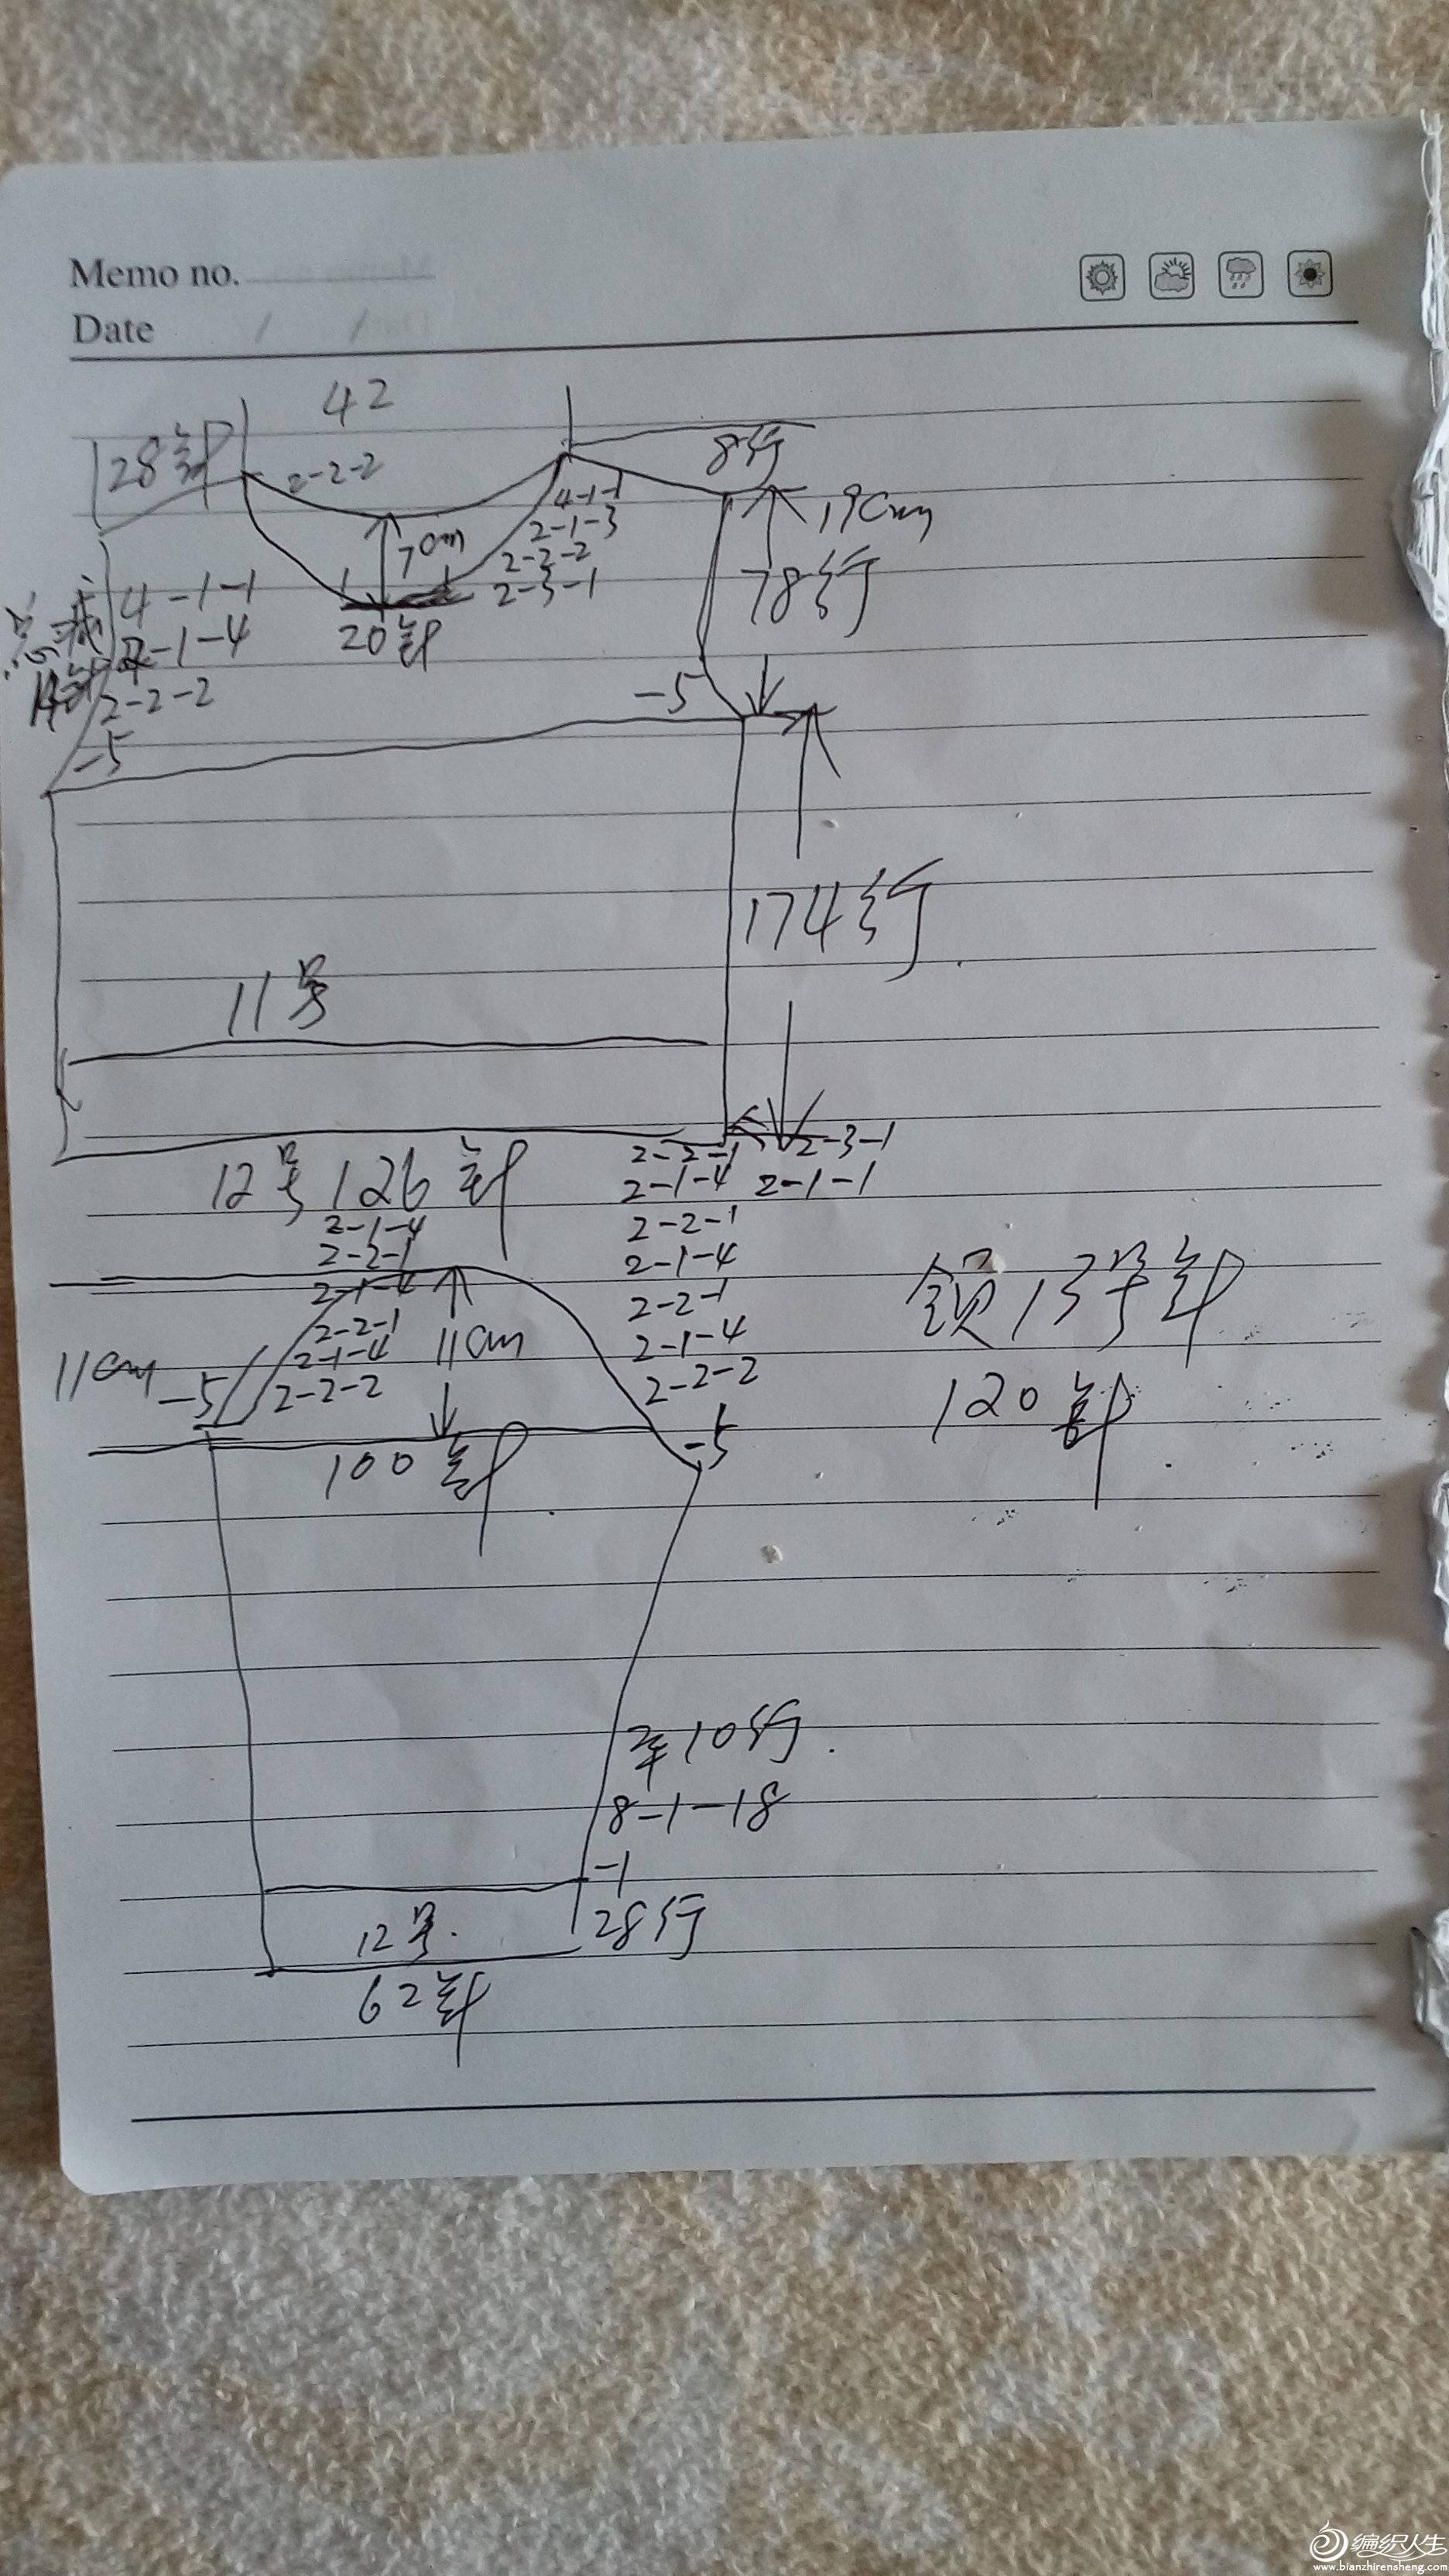 Memo no.
Date / /
42
28针
2-2-2
8行
19cm
7cm
4-1-1
2-1-3
2-2-2
2-3-1
78行
20针
总减
14针
4-1-1
2-1-4
2-2-2
-5
-5
174行
11号
12号 126针
2-1-4
2-2-1
2-1-4
2-2-1
2-1-4
2-2-2
11cm
-5
11cm
2-2-1
2-1-4
2-2-1
2-1-4
2-2-1
2-1-4
2-2-2
-5
2-3-1
2-1-1
领13号针
120针
100针
平10行
8-1-18
-1
28行
12号
62针
编织人生
www.bianzhirensheng.com